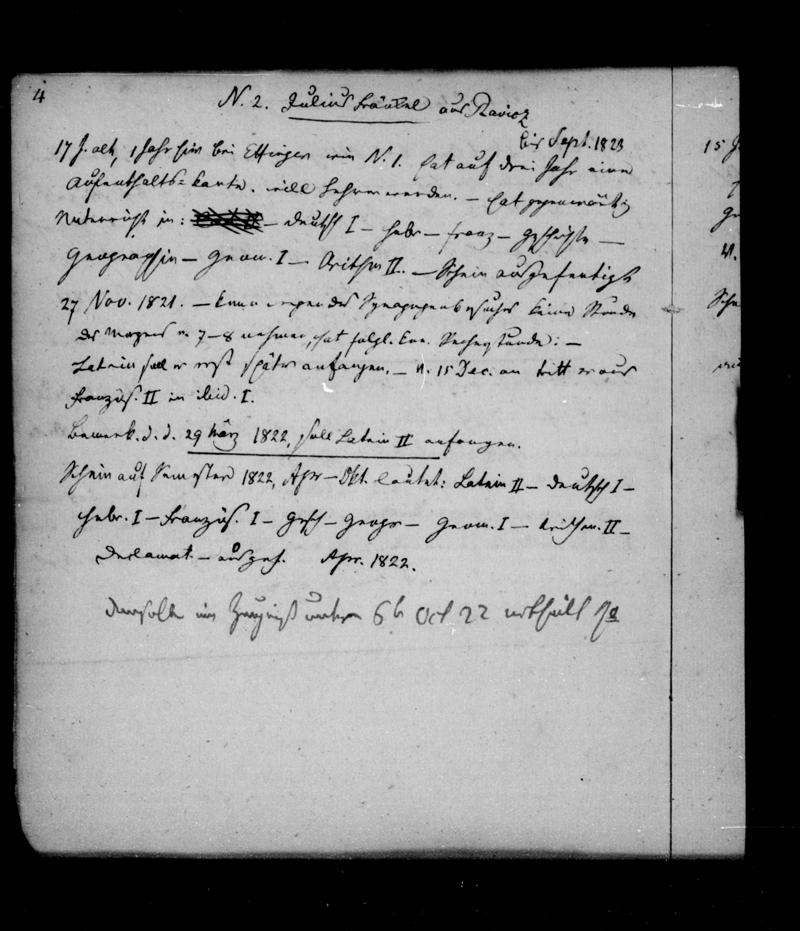 4
N. 2. Julius Fränkel aus Rawicz
bis Sept. 1823
17 J. alt, 1 Jahr hier bei Ettinger wie N. 1. hat auf drei Jahr eine
Aufenthalts=karte. will Lehrer werden. – hat gegenwärtig
Unterricht in: – deutsch I – hebr – franz – Geschichte –
Geographie – Geom. I – Arithm II. – Schein ausgefertigt
27 Nov. 1821. – kann wegen des Synagogenbesuches keine Stunde
des Morgens v. 7–8 nehmen, hat folgl. keine
Latein soll er erst später anfangen. – v. 15 Dec. an tritt er aus
Französ. II in ibid. I.
Bemerk. d. d. 29 März 1822, soll Latein II anfangen.
Schein auf Semester 1822, Apr – Okt. lautet: Latein II – deutsch I –
Hebr. I – Französ. I – Gesch – Geogr – Geom. I – Arithm. II –
Declamat. – ausgef. Apr. 1822.
derselbe ein Zeugniß unterm 6t Oct 22 ertheilt
15 J
Ge
Sche